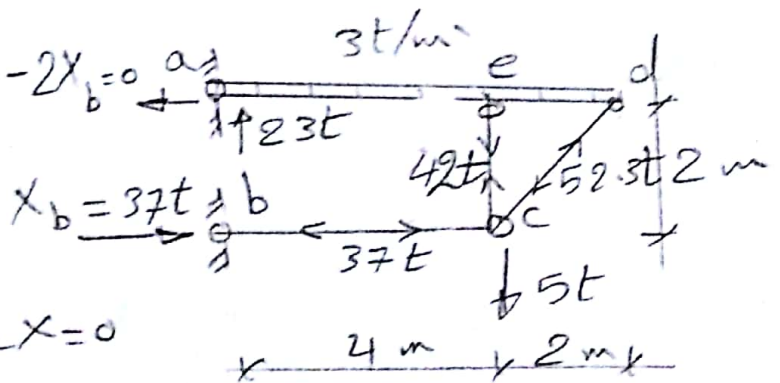 3t/m
-2X_b=0 a e d
23t
42t 52.3t 2 m
X_b=37t b c
37t
5t
-X=0
4 m 2 m